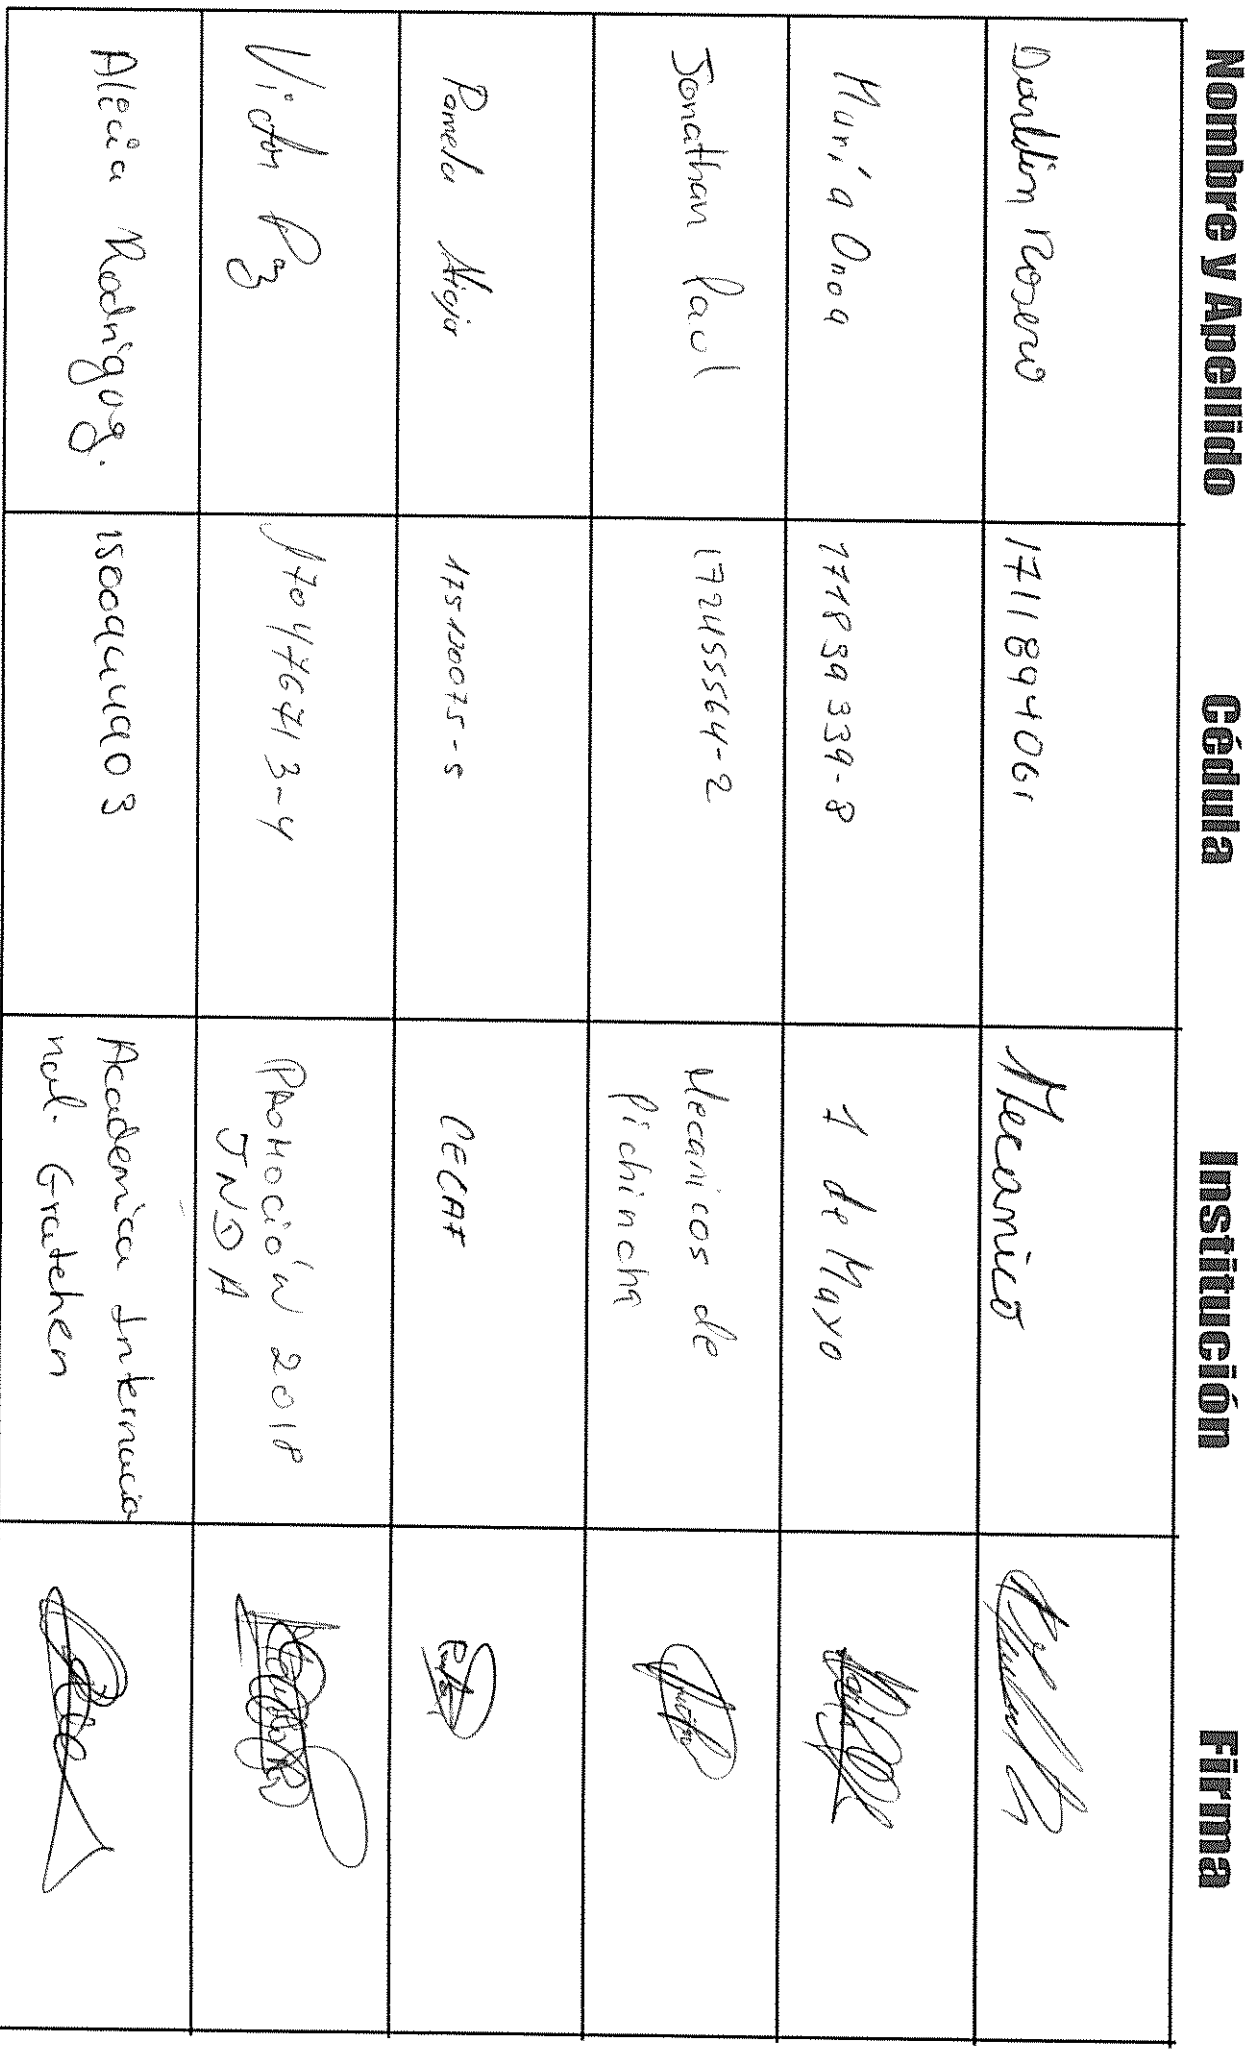 Nombre y Apellido Cédula Institución Firma
Rosero 1711894061 Mecanico
María Onoa 171839339-8 1 de Mayo
Jonathan Paul 172455564-2 Mecanicos de
Pichincha
Pamela 175120075-5 CECAF
Victor Paz 170476713-4 PROMOCIÓN 2018
JNDA
Alicia Rodriguez. Academica Internacio
nal. Gratchen